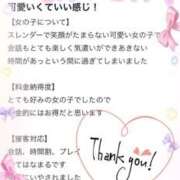 可愛いくていい感じ!
【女の子について】
スレンダーで笑顔がたまらない可愛い女の子で
会話もとても楽しく気遣いができあきない
時間があっという間に過ぎてしまいました
【料金納得度】
とても好みの女の子でしたので
金的にはお得だと思います
Thank you!
【接客対応】
会話、時間割、プレイ
てはなまるです
にいやされました